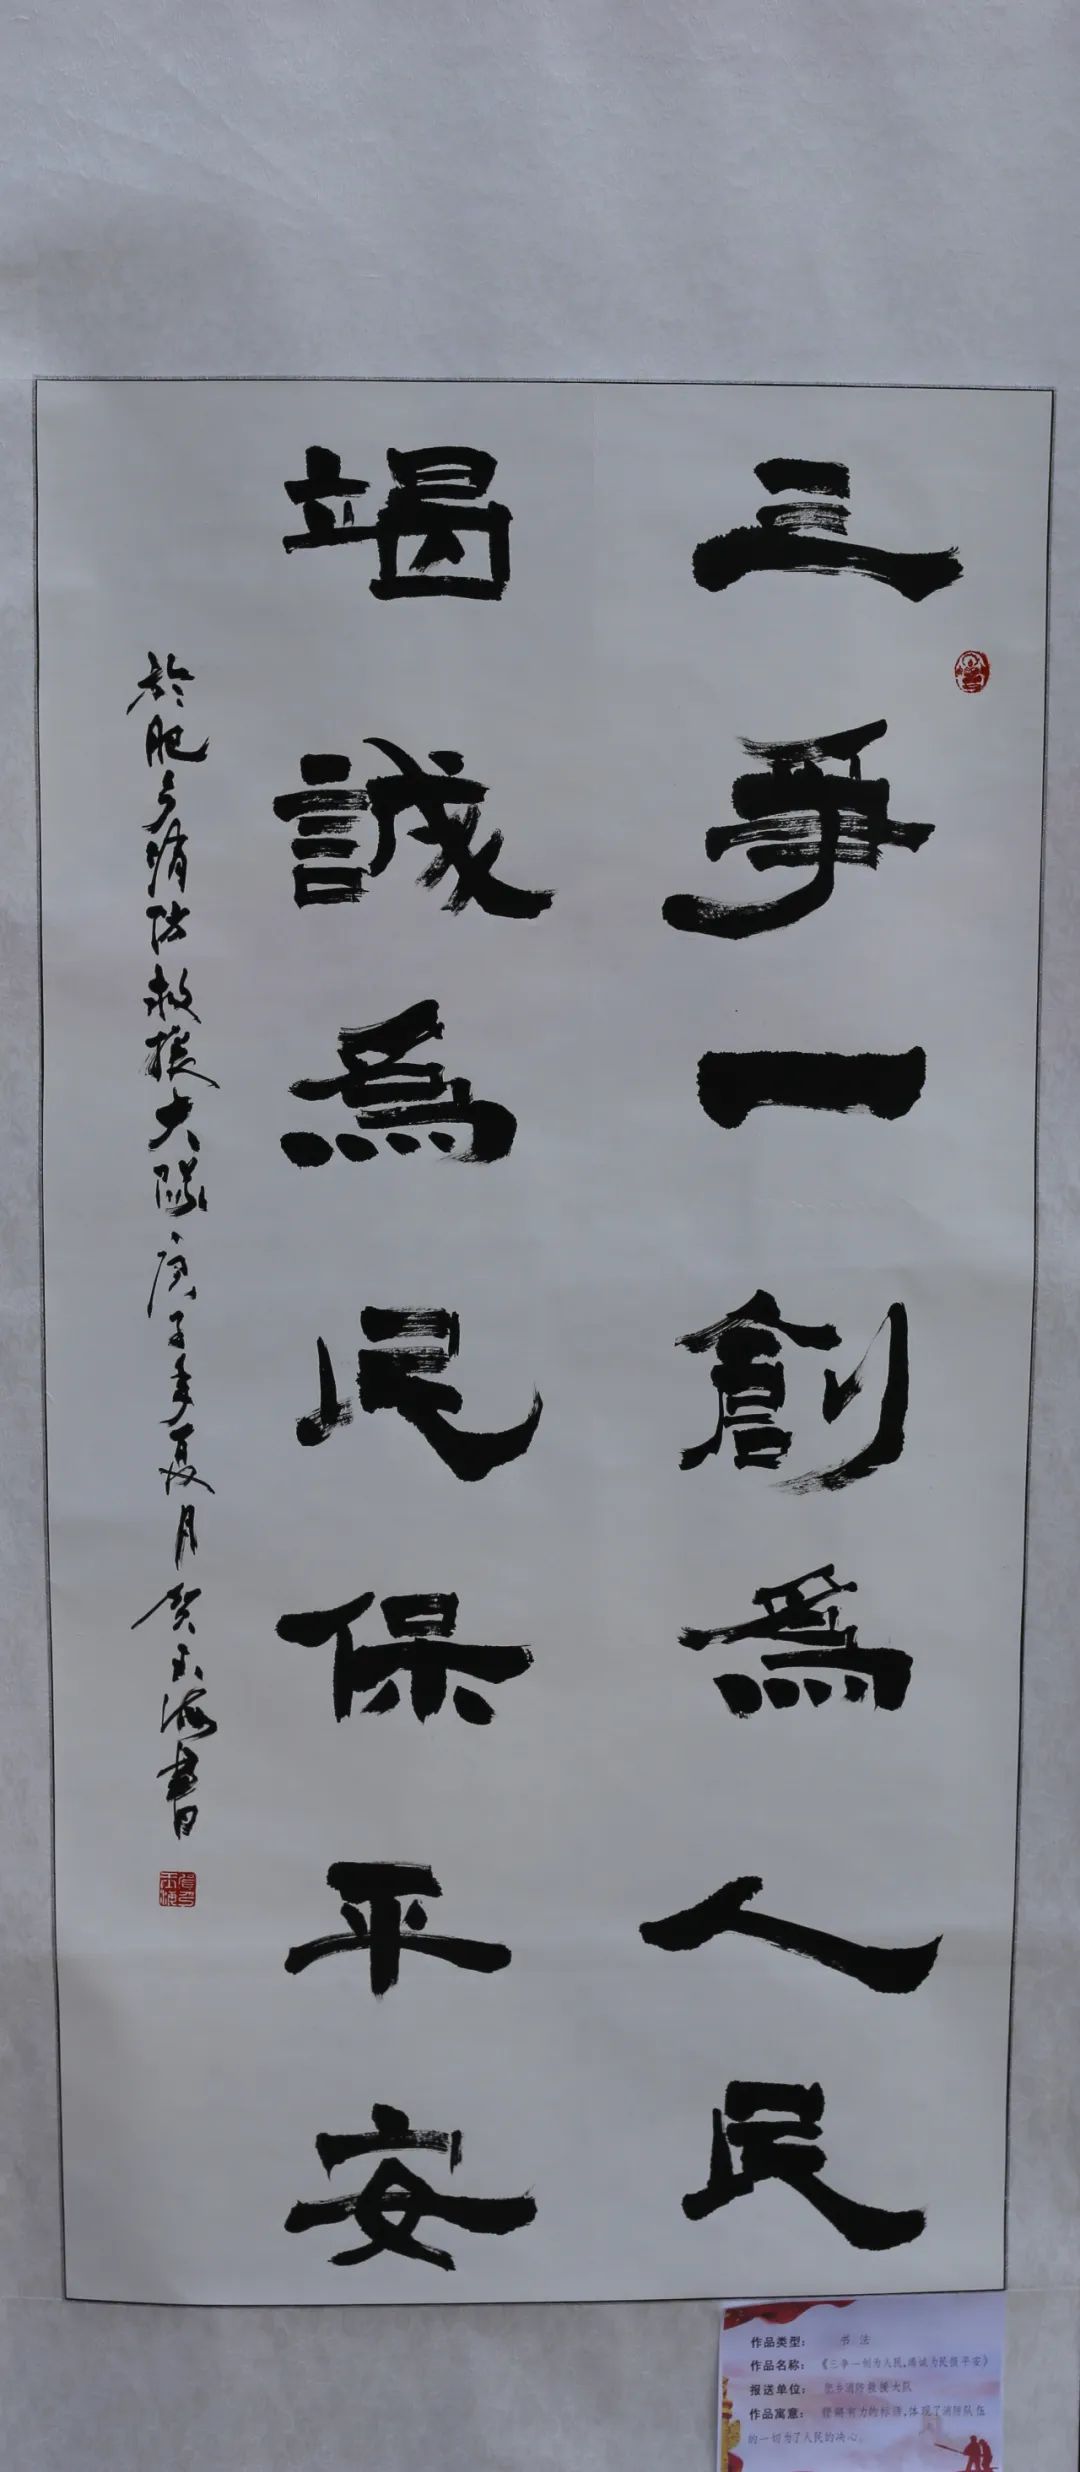 三爭一創為人民
竭誠為民保平安
於肥乡消防救援大隊庚子年夏月贺玉海書
作品类型： 书法
作品名称：《三争一创为人民，竭诚为民保平安》
报送单位： 肥乡消防救援大队
作品寓意： 铿锵有力的标语，体现了消防队伍
的一切为了人民的决心。